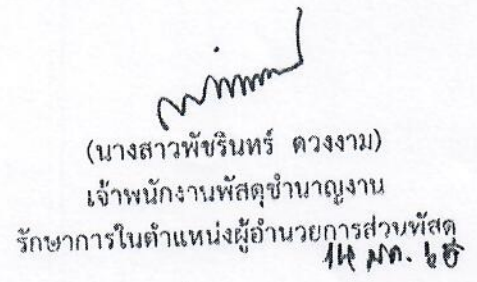 (นางสาวพัชรินทร์ ดวงงาม)
เจ้าพนักงานพัสดุชำนาญงาน
รักษาการในตำแหน่งผู้อำนวยการส่วนพัสดุ
14